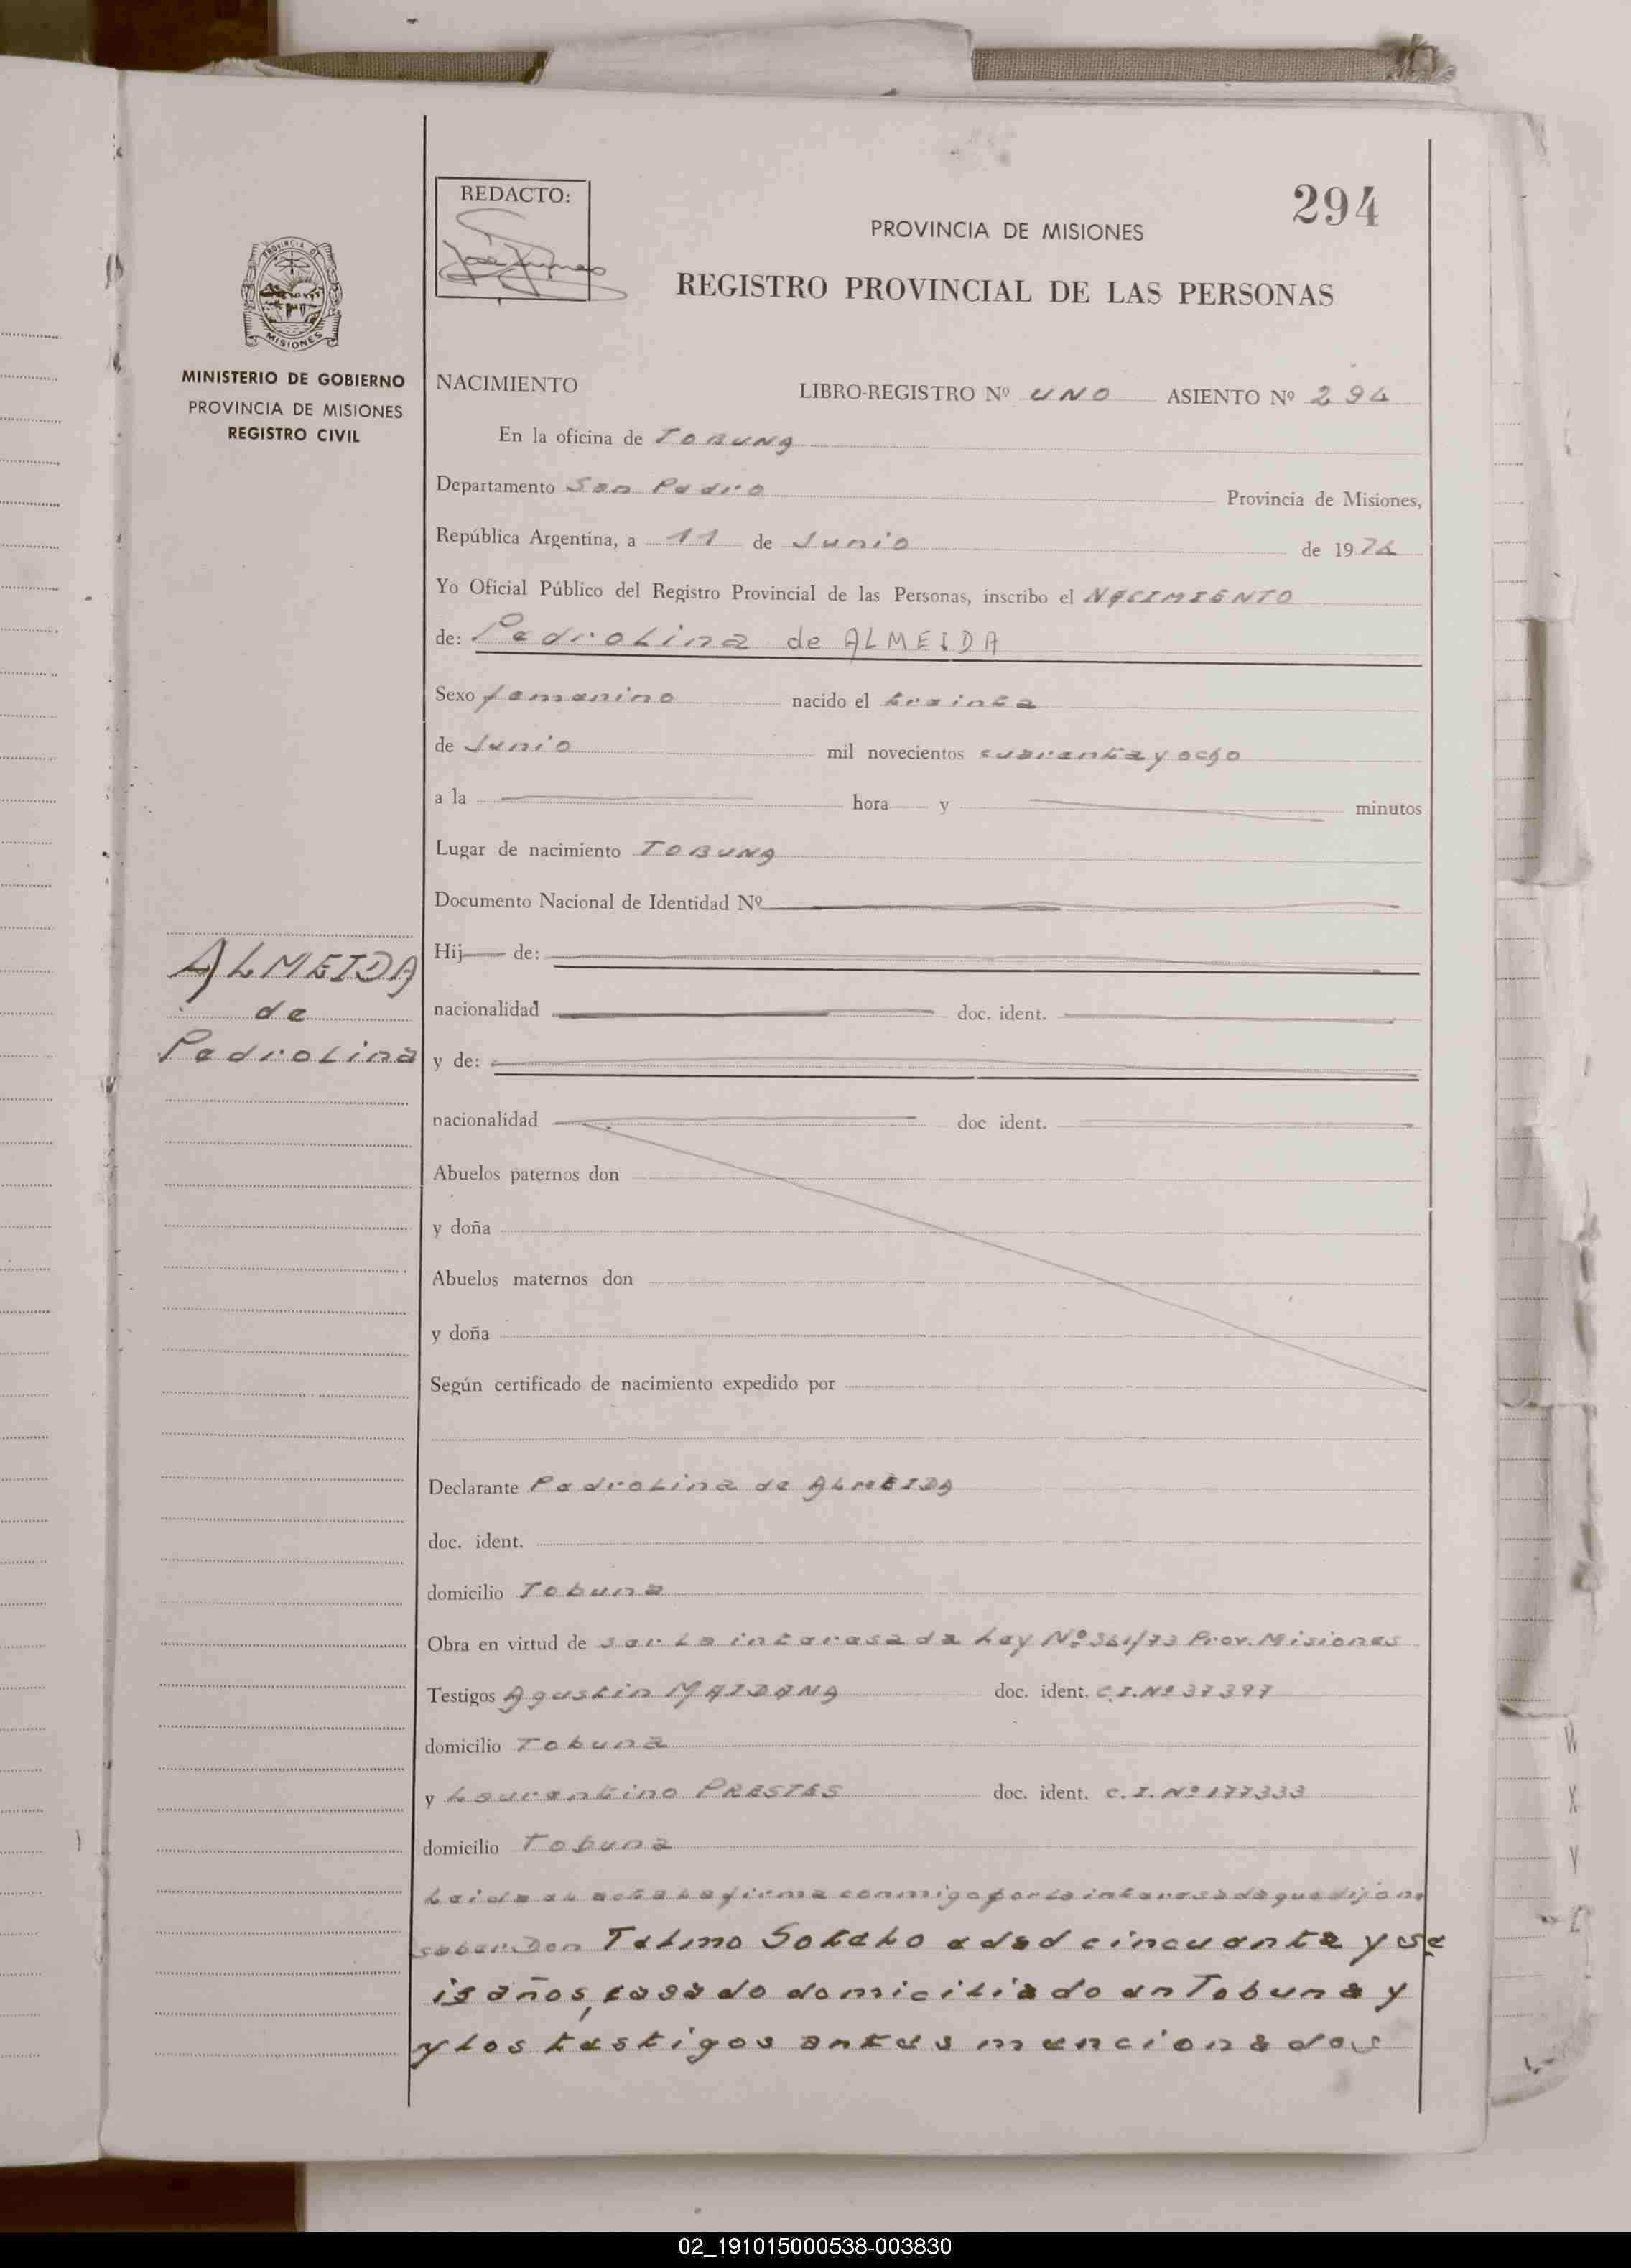 REDACTO:
294
PROVINCIA DE MISIONES
REGISTRO PROVINCIAL DE LAS PERSONAS
PROVINCIA DE
MISIONES
MINISTERIO DE GOBIERNO
PROVINCIA DE MISIONES
REGISTRO CIVIL
NACIMIENTO LIBRO-REGISTRO Nº UNO ASIENTO Nº 294
En la oficina de TOBUNA
Departamento San Pedro Provincia de Misiones,
República Argentina, a 11 de Junio de 1974
Yo Oficial Público del Registro Provincial de las Personas, inscribo el NACIMIENTO
de: Pedrolina de ALMEIDA
Sexo femenino nacido el treinta
de Junio mil novecientos cuarenta y ocho
a la hora y minutos
Lugar de nacimiento TOBUNA
Documento Nacional de Identidad Nº
Hij de:
nacionalidad doc. ident.
y de:
nacionalidad doc ident.
ALMEIDA
de
Pedrolina
Abuelos paternos don
y doña
Abuelos maternos don
y doña
Según certificado de nacimiento expedido por
Declarante Pedrolina de ALMEIDA
doc. ident.
domicilio Tobuna
Obra en virtud de ser la interesada Ley Nº 361/73 Prov. Misiones
Testigos Agustin MAIDANA doc. ident. C.I.Nº 37397
domicilio Tobuna
y Laurentino PRESTES doc. ident. C.I. Nº 177333
domicilio Tobuna
Leida el acta la firma conmigo por la interesada que dijo no
saber Don Telmo Sotelo edad cincuenta y se
is años, casado domiciliado en Tobuna y
y los testigos antes mencionados
02_191015000538-003830